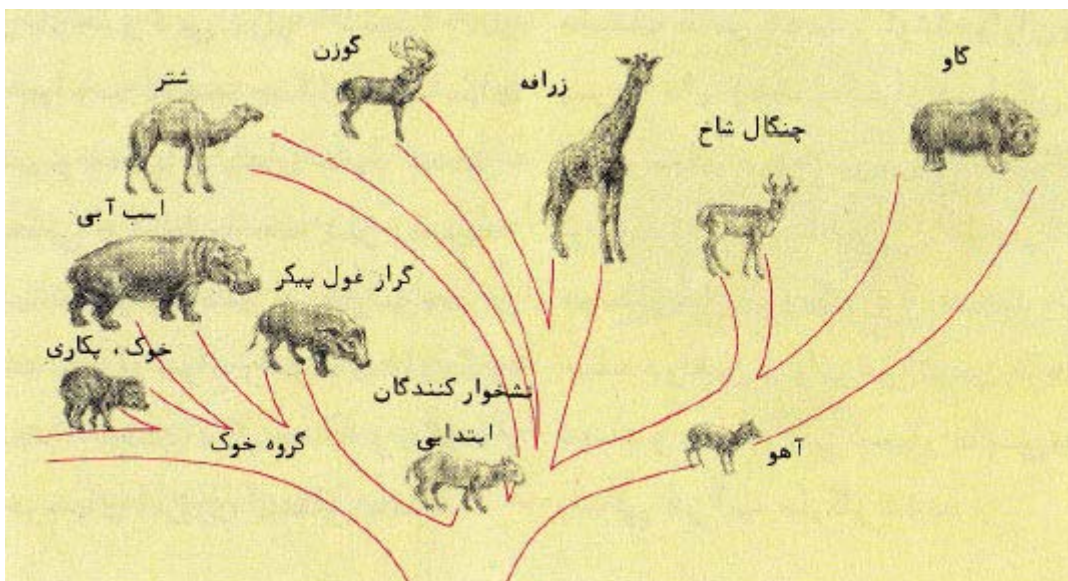 گاو
گوزن
زرافه
شتر
چنگال شاخ
اسب آبی
گراز غول پیکر
خوک، پکاری
نشخوار کنندگان
ابتدایی
گروه خوک
آهو